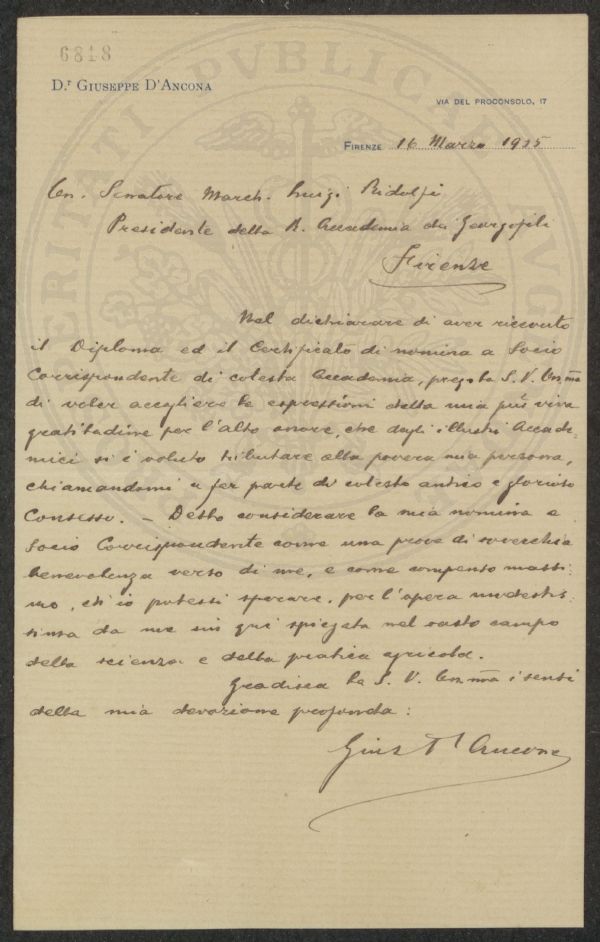 6818
Dr Giuseppe D'Ancona
VIA DEL PROCONSOLO, 17
FIRENZE 16 Marzo 1905
On. Senatore March. Luigi Ridolfi
Presidente della R. Accademia dei Georgofili
Firenze
Nel dichiarare di aver ricevuto
il Diploma ed il Certificato di nomina a Socio
Corrispondente di cotesta Accademia, prego la S. V. Onma
di voler accogliere le espressioni della mia più viva
gratitudine per l'alto onore, che dagli illustri Accade-
mici si è voluto tributare alla povera mia persona,
chiamandomi a far parte di cotesto antico e glorioso
Consesso. – Debbo considerare la mia nomina a
Socio Corrispondente come una prova di soverchia
benevolenza verso di me, e come compenso massi-
mo, ch'io potessi sperare, per l'opera modestis-
sima da me sin qui spiegata nel vasto campo
della scienza e della pratica agricola.
Gradisca la S. V. Onma i sensi
della mia devozione profonda:
Gius D'Ancona